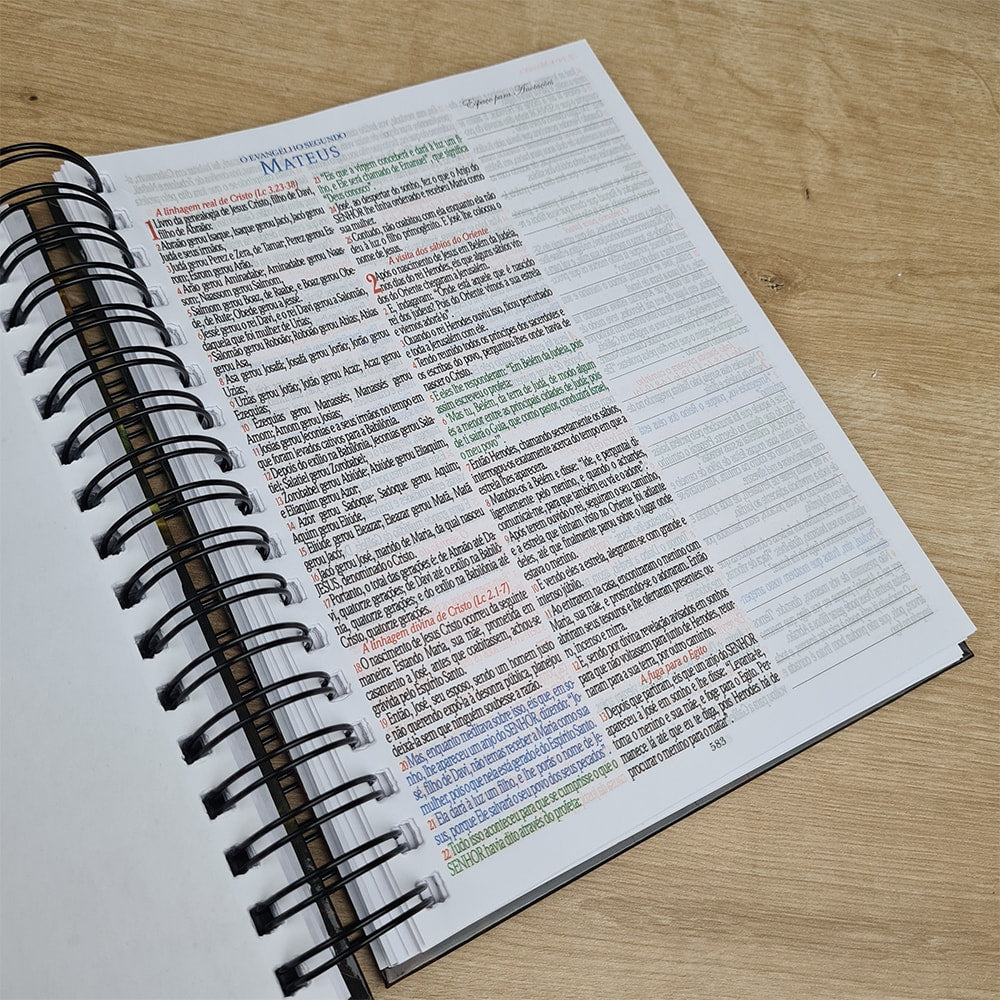 Espaço para Anotações
O EVANGELHO SEGUNDO
MATEUS
A linhagem real de Cristo (Lc 3.23-38)
1 Livro da genealogia de Jesus Cristo, filho de Davi,
filho de Abraão.
2 Abraão gerou Isaque, Isaque gerou Jacó, Jacó gerou
Judá e seus irmãos.
3 Judá gerou Perez e Zera, de Tamar; Perez gerou Es-
rom; Esrom gerou Arão.
4 Arão gerou Aminadabe; Aminadabe gerou Naas-
som; Naassom gerou Salmom.
5 Salmom gerou Boaz, de Raabe, e Boaz gerou Obe-
de, de Rute; Obede gerou a Jessé.
6 Jessé gerou o rei Davi, e o rei Davi a Salomão,
daquela que foi mulher de Urias.
7 Salomão gerou Roboão; Roboão gerou Abias; Abias
gerou Asa,
8 Asa gerou Josafá, Josafá gerou Jorão; Jorão gerou
Uzias;
9 Uzias gerou Jotão; Jotão gerou Acaz, Acaz gerou
Ezequias;
10 Ezequias gerou Manassés, Manassés gerou
Amom; Amom gerou Josias;
11 Josias gerou Jeconias e a seus irmãos no tempo em
que foram levados cativos para a Babilônia.
12 Depois do exílio na Babilônia, Jeconias gerou Sala-
tiel; Salatiel gerou Zorobabel;
13 Zorobabel gerou Abiúde, Abiúde gerou Eliaquim,
e Eliaquim gerou Azor,
14 Azor gerou Sadoque; Sadoque gerou Aquim;
Aquim gerou Eliúde,
15 Eliúde gerou Eleazar, Eleazar gerou Matã, Matã
gerou Jacó;
16 Jacó gerou José, marido de Maria, da qual nasceu
JESUS, denominado o Cristo.
17 Portanto, o total das gerações é: de Abraão até Da-
vi, quatorze gerações; de Davi até o exílio na Babilô-
nia, quatorze gerações; e do exílio na Babilônia até
Cristo, quatorze gerações.
A linhagem divina de Cristo (Lc 2.1-7)
18 O nascimento de Jesus Cristo ocorreu da seguinte
maneira: Estando Maria, sua mãe, prometida em
casamento a José, antes que coabitassem, achou-se
grávida pelo Espírito Santo.
19 Então, José, seu esposo, sendo um homem justo
e não querendo expô-la à desonra pública, planejou
deixá-la sem que ninguém soubesse a razão.
20 Mas, enquanto meditava sobre isso, eis que, em so-
nho, lhe apareceu um anjo do SENHOR, dizendo: "Jo-
sé, filho de Davi, não temas receber a Maria como sua
mulher, pois o que nela está gerado é do Espírito Santo.
21 Ela dará à luz um filho, e lhe porás o nome de Je-
sus, porque Ele salvará o seu povo dos seus pecados".
22 Tudo isso aconteceu para que se cumprisse o que o
SENHOR havia dito através do profeta:
23 "Eis que a virgem conceberá e dará à luz um fi-
lho, e Ele será chamado de Emanuel", que significa
"Deus conosco".
24 José, ao despertar do sonho, fez o que o Anjo do
SENHOR lhe tinha ordenado e recebeu Maria como
sua mulher.
25 Contudo, não coabitou com ela enquanto ela não
deu à luz o filho primogênito. E José lhe colocou o
nome de Jesus.
A visita dos sábios do Oriente
2 Após o nascimento de Jesus em Belém da Judéia,
nos dias do rei Herodes, eis que alguns sábios vin-
dos do Oriente chegaram a Jerusalém.
2 E, indagaram: "Onde está aquele que é nascido
rei dos judeus? Pois do Oriente vimos a sua estrela
e viemos adorá-lo".
3 Quando o rei Herodes ouviu isso, ficou perturbado
e toda a Jerusalém com ele.
4 Tendo reunido todos os príncipes dos sacerdotes e
os escribas do povo, perguntou-lhes onde havia de
nascer o Cristo.
5 E eles lhe responderam: "Em Belém da Judéia, pois
assim escreveu o profeta:
6 'Mas tu, Belém, da terra de Judá, de modo algum
és a menor entre as principais cidades de Judá; pois
de ti sairá o Guia, que como pastor, conduzirá Israel,
o meu povo'".
7 Então Herodes, chamando secretamente os sábios,
interrogou-os exatamente acerca do tempo em que a
estrela lhes aparecera.
8 Mandou-os à Belém e disse: "Ide, e perguntai di-
ligentemente pelo menino, e quando o achardes,
comunicai-me, para que também eu vá e o adore".
9 Após terem ouvido o rei, seguiram o seu caminho,
e a estrela que tinham visto no Oriente foi adiante
deles, até que finalmente parou sobre o lugar onde
estava o menino.
10 E vendo eles a estrela, alegraram-se com grande e
intenso júbilo.
11 Ao entrarem na casa, encontraram o menino com
Maria, sua mãe, e prostrando-se, o adoraram. Então
abriram seus tesouros e lhe ofertaram presentes: ou-
ro, incenso e mirra.
12 E, sendo por divina revelação avisados em sonhos
para que não voltassem para junto de Herodes, retor-
naram para a sua terra, por outro caminho.
A fuga para o Egito
13 Depois que partiram, eis que um anjo do SENHOR
apareceu a José em sonho e lhe disse: "Levanta-te,
toma o menino e sua mãe, e foge para o Egito. Per-
manece lá até que eu te diga, pois Herodes há de
procurar o menino para o matar."
583